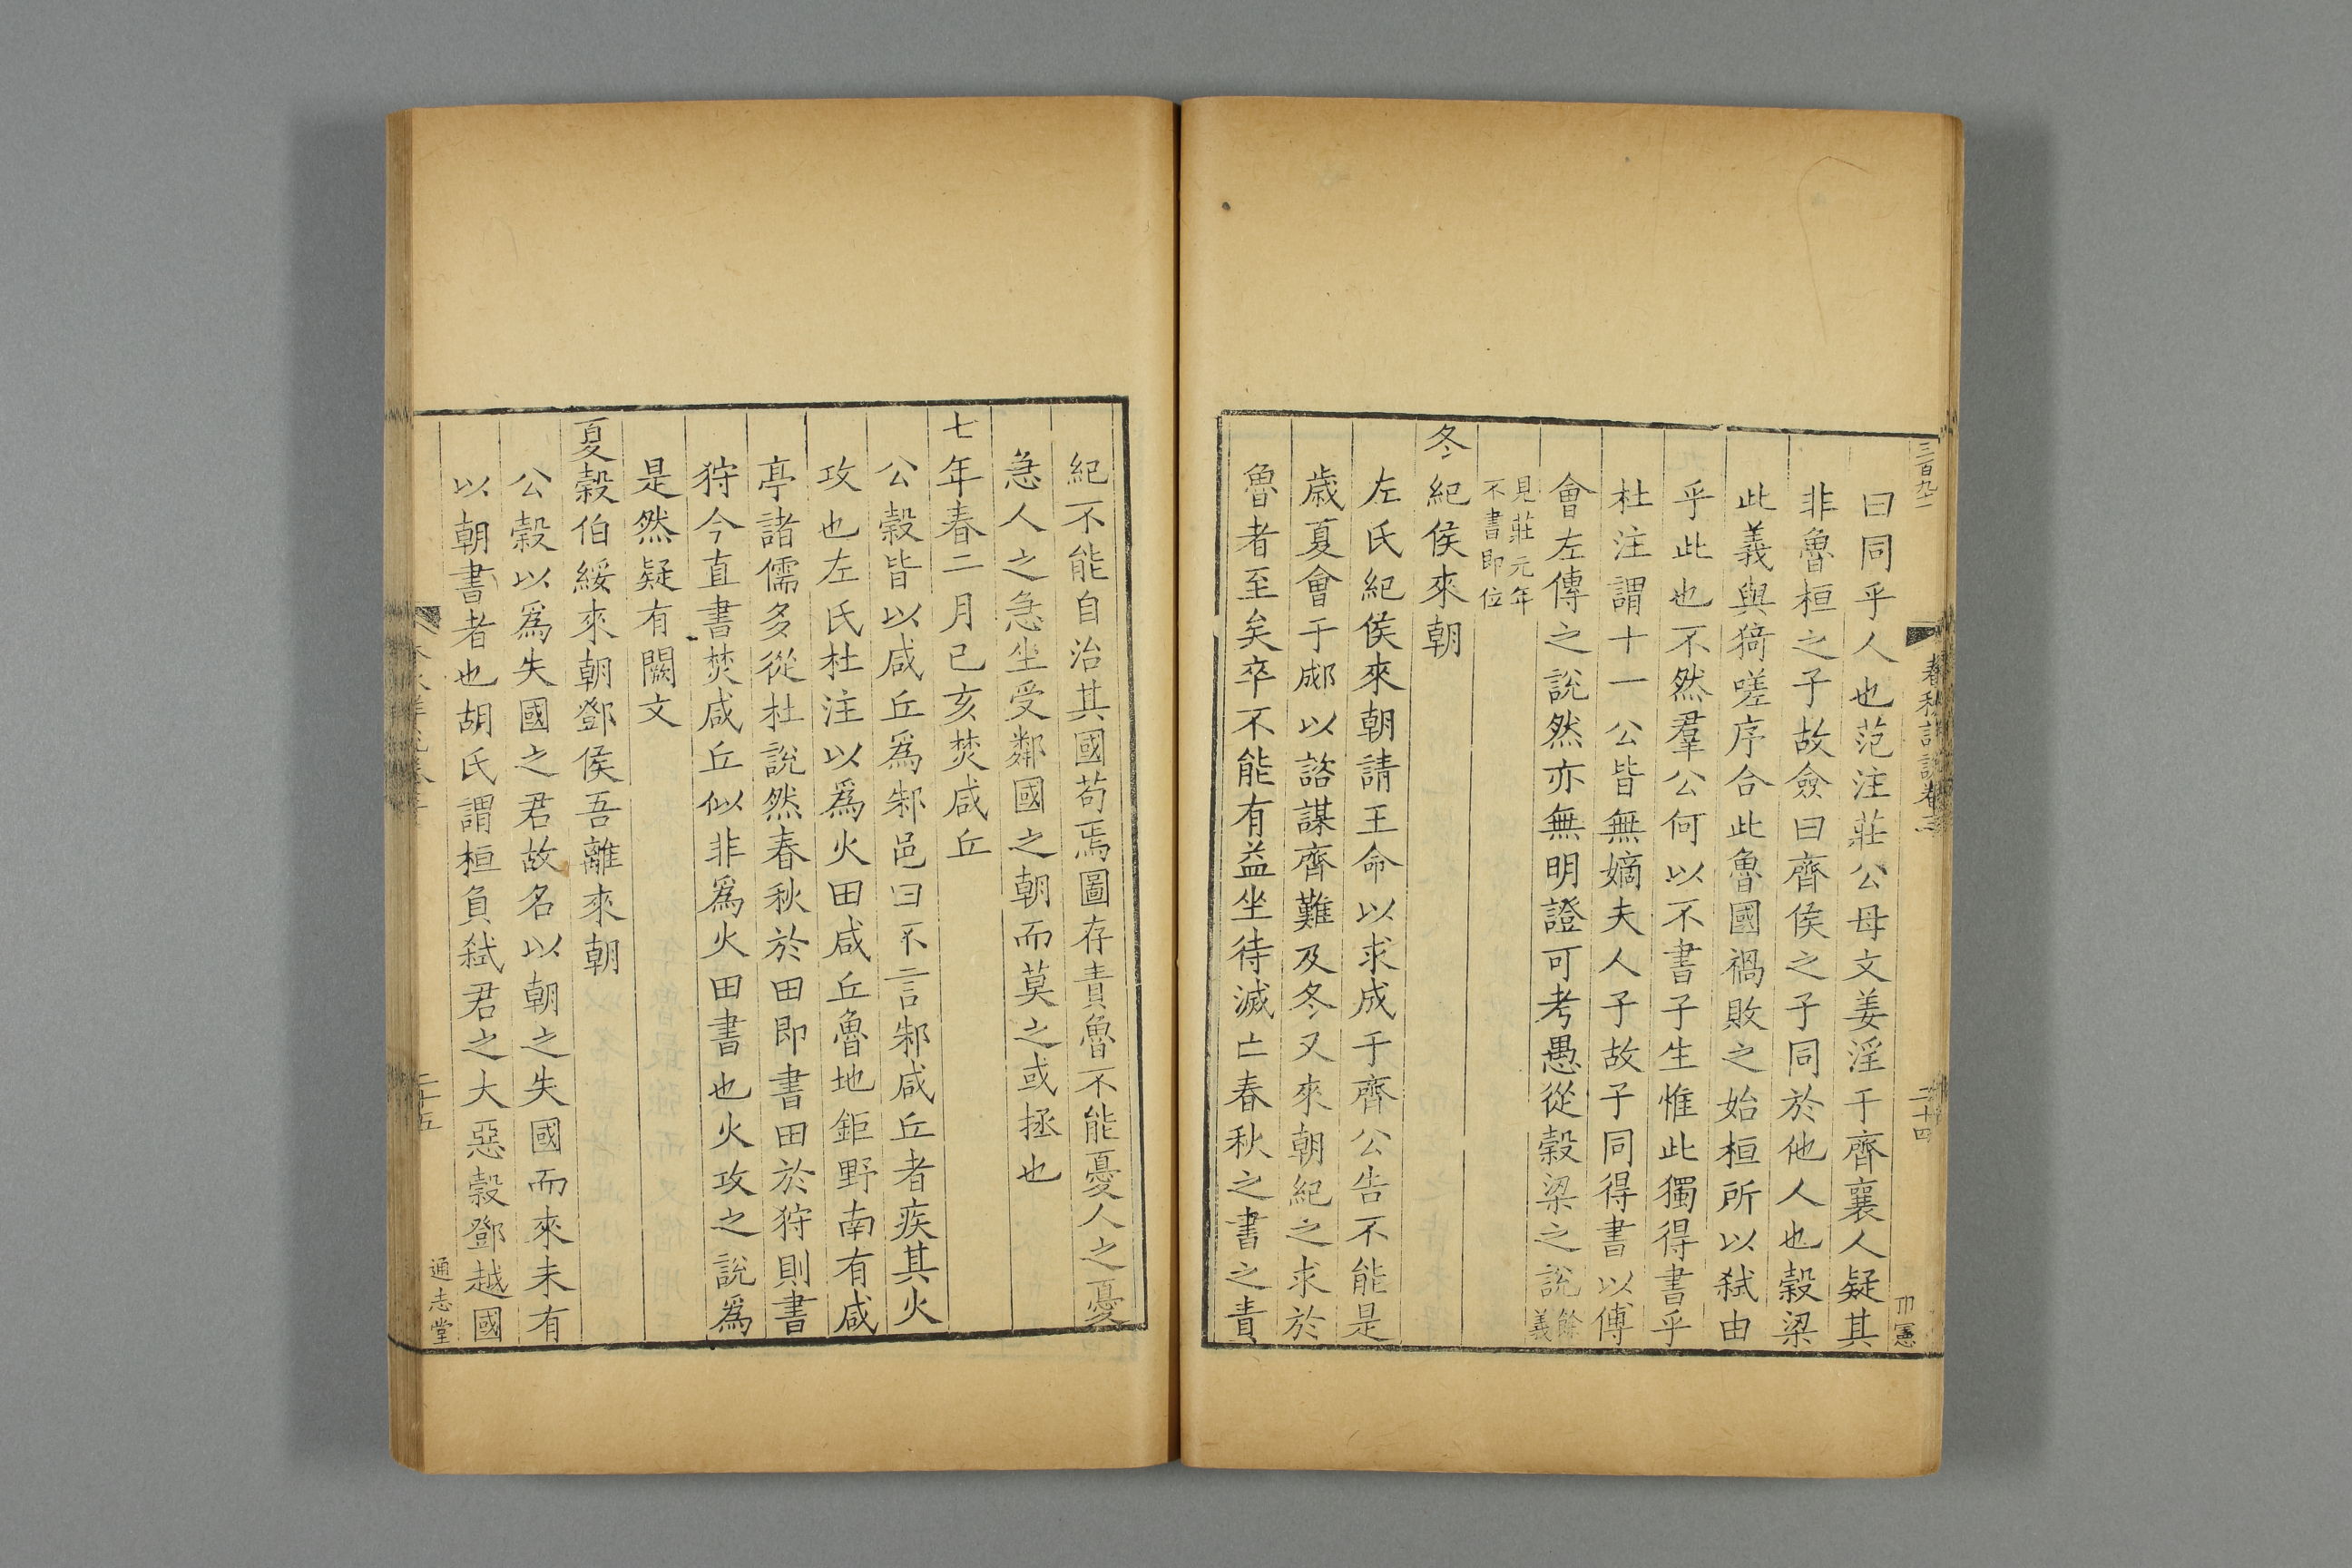 三百九一
春秋詳說卷三
二十四
曰同乎人也范注莊公母文姜淫于齊襄人疑其
非魯桓之子故僉曰齊侯之子同於他人也穀梁
此義與猗嗟序合此魯國禍敗之始桓所以弑由
乎此也不然羣公何以不書子生惟此獨得書乎
杜注謂十一公皆無嫡夫人子故子同得書以傅
會左傳之說然亦無明證可考愚從穀梁之說餘義
見莊元年
不書即位
冬紀侯來朝
左氏紀侯來朝請王命以求成于齊公告不能是
歲夏會于郕以諮謀齊難及冬又來朝紀之求於
魯者至矣卒不能有益坐待滅亡春秋之書之責
紀不能自治其國苟焉圖存責魯不能憂人之憂
急人之急坐受鄰國之朝而莫之或拯也
七年春二月己亥焚咸丘
公穀皆以咸丘爲邾邑曰不言邾咸丘者疾其火
攻也左氏杜注以爲火田咸丘魯地鉅野南有咸
亭諸儒多從杜說然春秋於田即書田於狩則書
狩今直書焚咸丘似非爲火田書也火攻之說爲
是然疑有闕文
夏穀伯綏來朝鄧侯吾離來朝
公穀以爲失國之君故名以朝之失國而來未有
以朝書者也胡氏謂桓負弑君之大惡穀鄧越國
二十五
通志堂